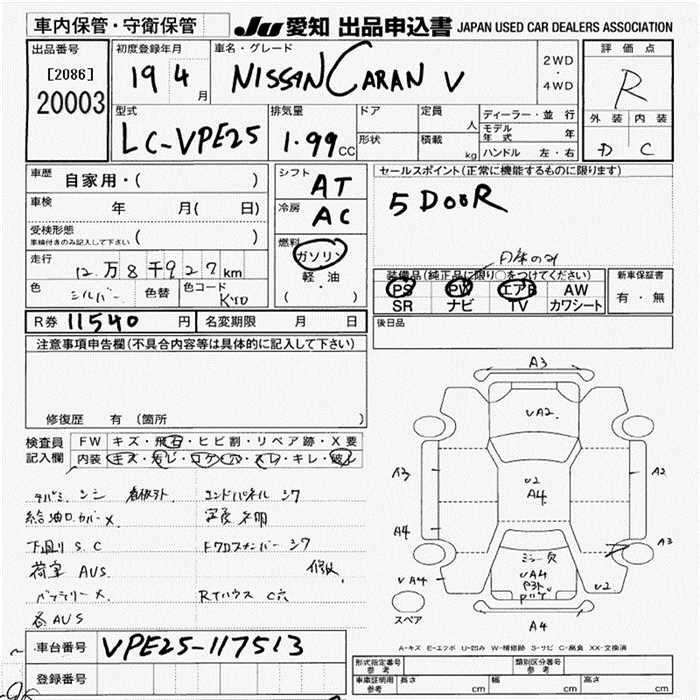 車内保管・守衛保管
JU 愛知 出品申込書 JAPAN USED CAR DEALERS ASSOCIATION
出品番号
[2086]
20003
初度登録年月
19 4 月
車名・グレード
NISSAN CARAN V
2WD
・
4WD
評価点
R
外装 内装
D C
型式
LC-VPE25
排気量
1.99 CC
ドア
形状
定員
人
積載
kg
ディーラー・並行
モデル年式 年
ハンドル 左・右
車歴 自家用・( )
車検 年 月( 日)
受検形態
車検付きのみ記入して下さい ( )
走行 12万8千927km
色 シルバー 色替 色コード KY0
シフト AT
冷房 AC
燃料
ガソリン
軽・油
( )
セールスポイント(正常に機能するものに限ります)
5 DOOR
装備品(純正品に限り○をつけてください)
PS PW エアB AW
SR ナビ TV カワシート
新車保証書
有・無
R券 11540 円 名変期限 月 日
後日品
注意事項申告欄(不具合内容等は具体的に記入して下さい)
修復歴 有 (箇所 )
検査員
記入欄
FW キズ・飛石・ヒビ割・リペア跡・X要
内装
給油口カバーX
エンドパネル
下廻り S.C
荷室 AUS
バッテリーX
各 AUS
A3
UA2
A3
U2
A4
A2
A4
A3
UA4
VA4
U2
A4
スペア
A-キズ E-エクボ U-凹み W-補修跡 S-サビ C-腐食 XX-交換済
車台番号 VPE25-117513
登録番号
形式指定番号
参考
類別区分番号
参考
車庫証明用
参考
長さ cm 幅 cm 高さ cm